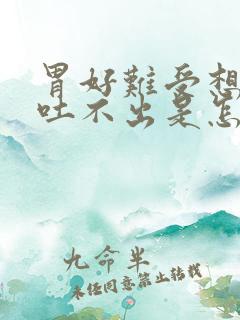 胃好難受想
吐不出是怎
九命半
未經同意禁止转载